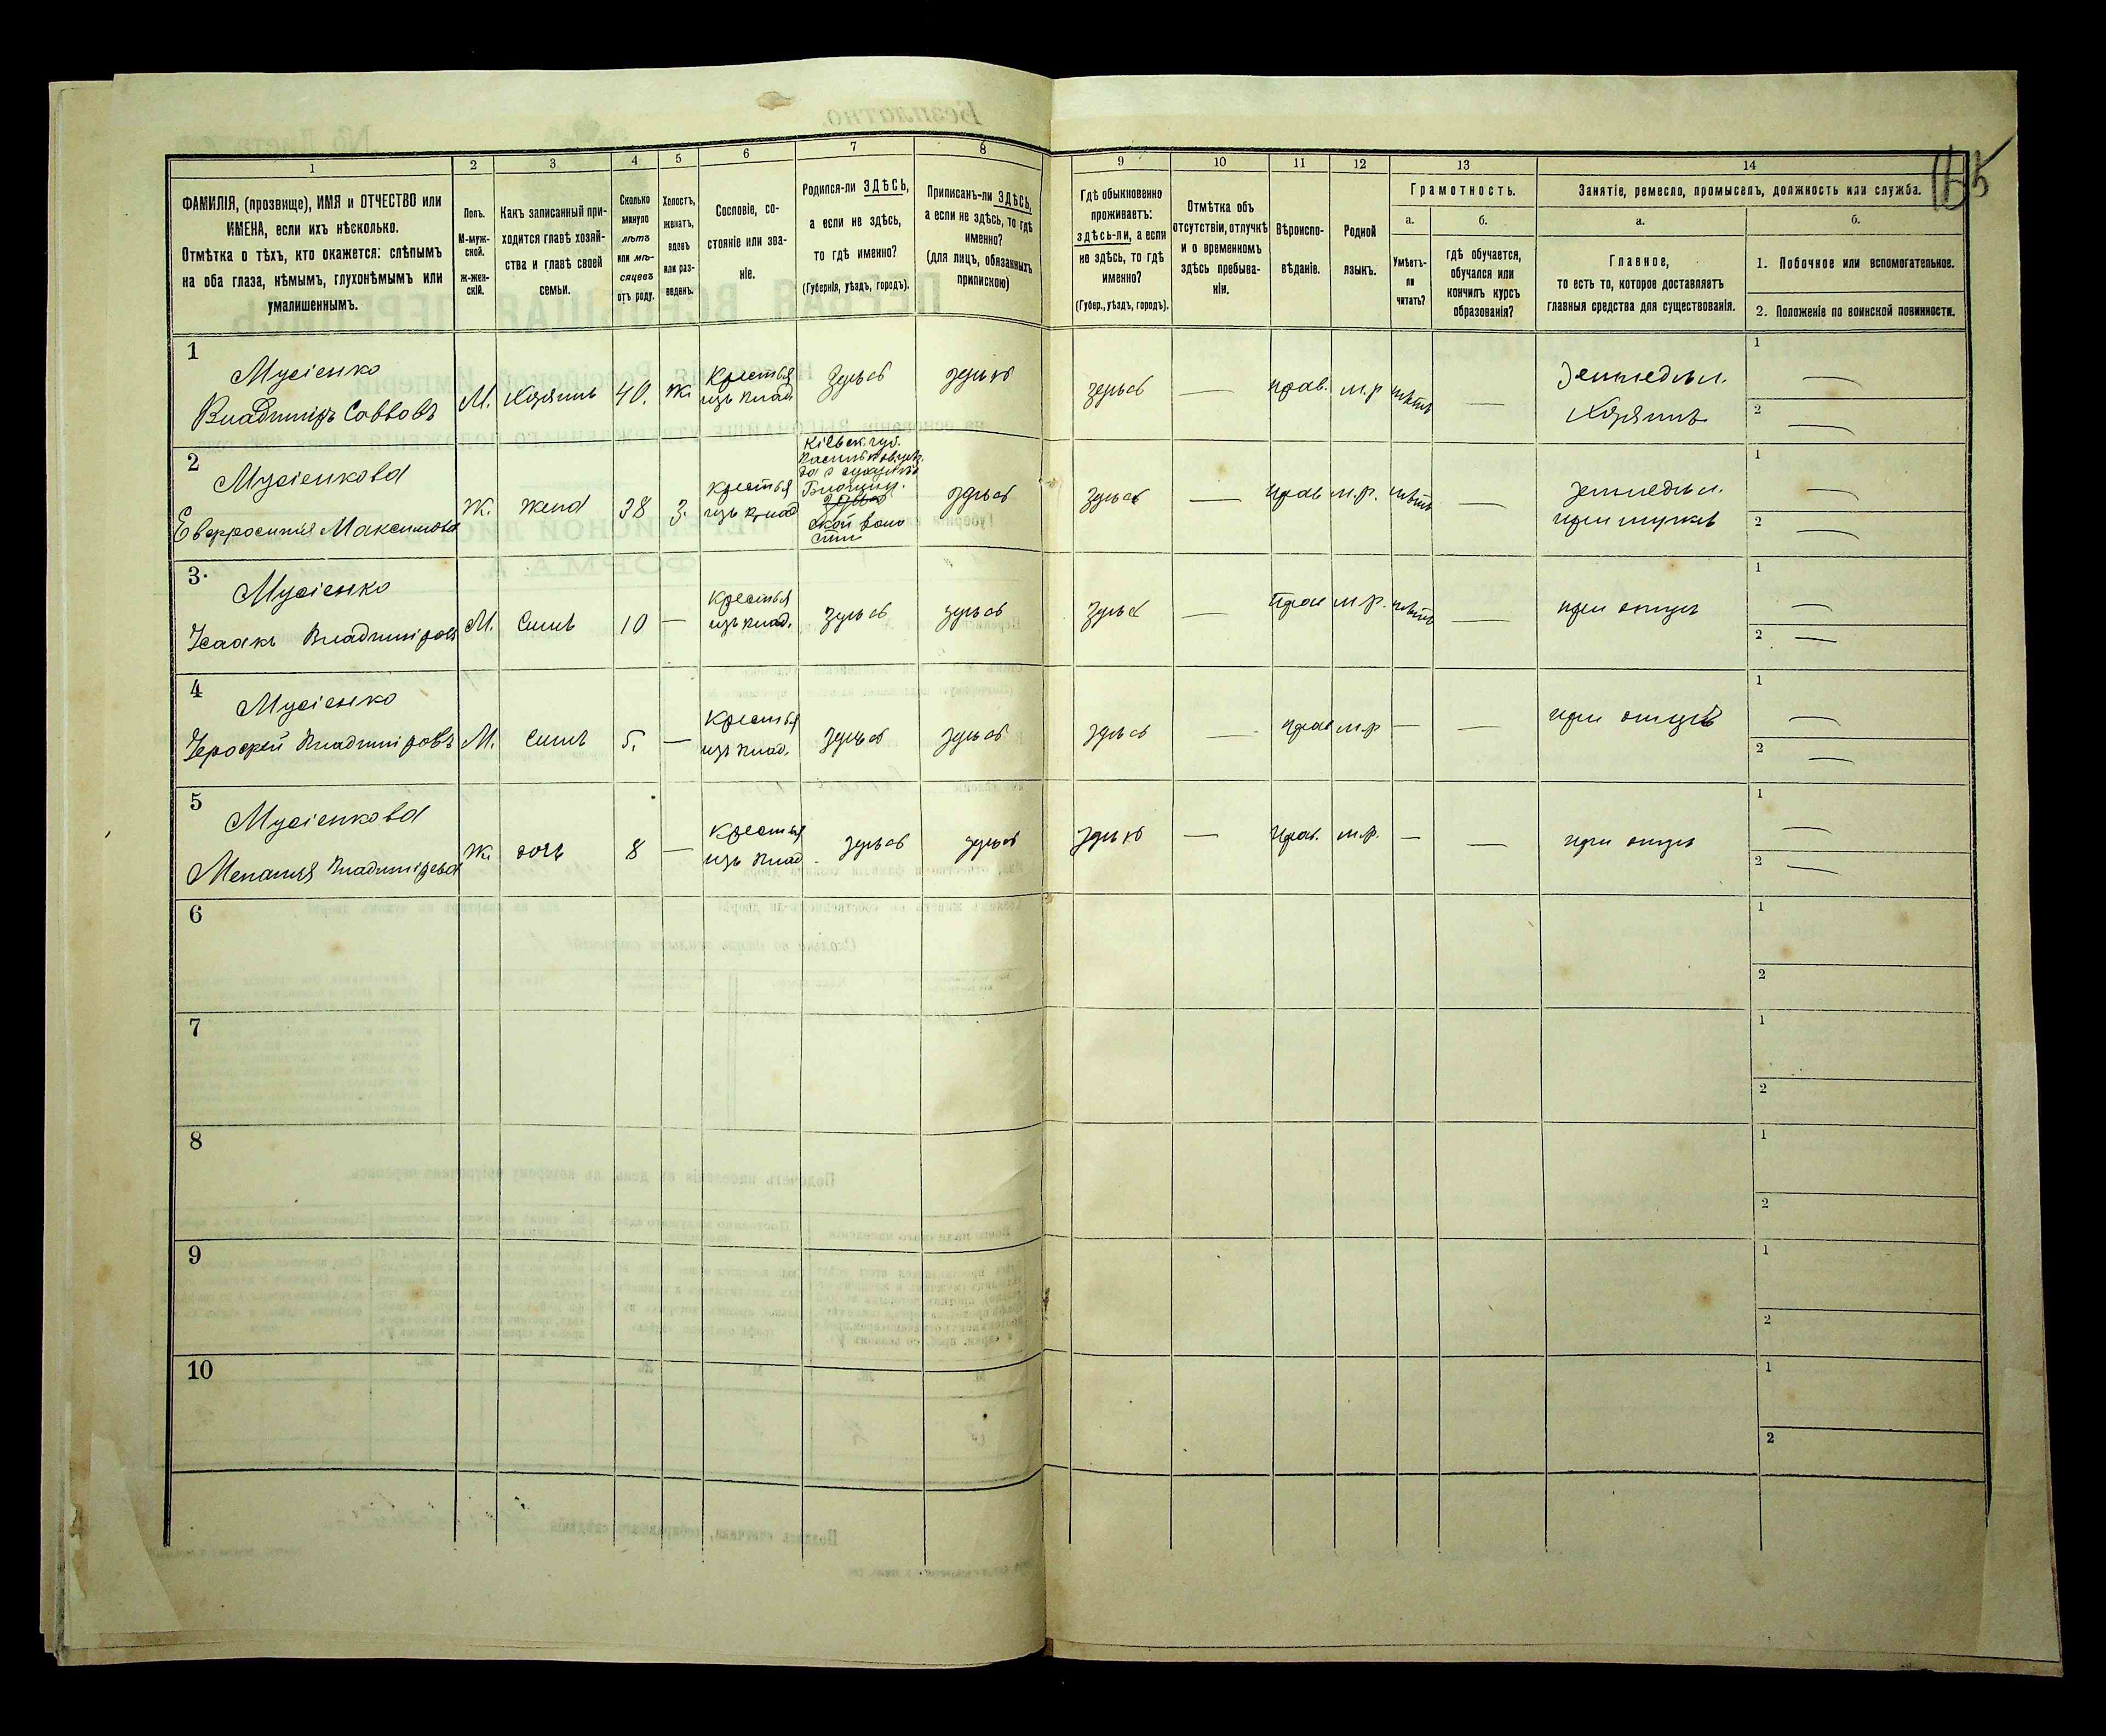 1 2 3 4 5 6 7 8 9 10 11 12 13 14
ФАМИЛІЯ, (прозвище), ИМЯ и ОТЧЕСТВО или
ИМЕНА, если ихъ нѣсколько.
Отмѣтка о тѣхъ, кто окажется: слѣпымъ
на оба глаза, нѣмымъ, глухонѣмымъ или
умалишеннымъ.
Полъ.
М-муж-
ской.
Ж-жен-
скій.
Какъ записанный при-
ходится главѣ хозяй-
ства и главѣ своей
семьи.
Сколько
минуло
лѣтъ
или мѣ-
сяцевъ
отъ роду.
Холостъ,
женатъ,
вдовъ
или раз-
веденъ.
Сословіе, со-
стояніе или зва-
ніе.
Родился-ли ЗДѢСЬ,
а если не здѣсь,
то гдѣ именно?
(Губернія, уѣздъ, городъ).
Приписанъ-ли ЗДѢСЬ,
а если не здѣсь, то гдѣ
именно?
(для лицъ, обязанныхъ
припискою)
Гдѣ обыкновенно
проживаетъ:
здѣсь-ли, а если
не здѣсь, то гдѣ
именно?
(Губер., уѣздъ, городъ).
Отмѣтка объ
отсутствіи, отлучкѣ
и о временномъ
здѣсь пребыва-
ніи.
Вѣроиспо-
вѣданіе.
Родной
языкъ.
Грамотность.
а.
Умѣетъ-
ли
читать?
б.
гдѣ обучается,
обучался или
кончилъ курсъ
образованія?
Занятіе, ремесло, промыселъ, должность или служба.
а.
Главное,
то есть то, которое доставляетъ
главныя средства для существованія.
б.
1. Побочное или вспомогательное.
2. Положеніе по воинской повинности.
1
Мусіенко
Владиміръ Саввовъ
М. Хозяинъ 40. Ж.
Крестья
изъ влад
Здѣсь здѣсь здѣсь — прав. м.р нѣтъ —
Земледѣл.
Хозяинъ
1 —
2 —
2
Мусіенкова
Евфросинія Максимова
Ж. жена 38 з.
крестья
изъ влад
Кіевск. губ.
Васильков. уѣз
скои воло
сти
здѣсь здѣсь — прав м.р. нѣтъ —
Земледѣл.
при мужѣ
1 —
2 —
3.
Мусіенко
Исаакъ Владиміровъ
М. Сынъ 10 —
Крестья
изъ влад.
здѣсь здѣсь здѣсь — Прав м.р. нѣтъ —
при отцѣ
1 —
2 —
4
Мусіенко
Ерофей Владиміровъ
М. Сынъ 5. —
Крестья
изъ влад.
здѣсь здѣсь здѣсь — прав м.р — —
при отцѣ
1 —
2 —
5
Мусіенкова
Меланія Владимірова
Ж. дочь 8 —
Крестья
изъ влад
здѣсь здѣсь здѣсь — прав. м.р. — —
при отцѣ
1 —
2 —
6
1
2
7
1
2
8
1
2
9
1
2
10
1
2